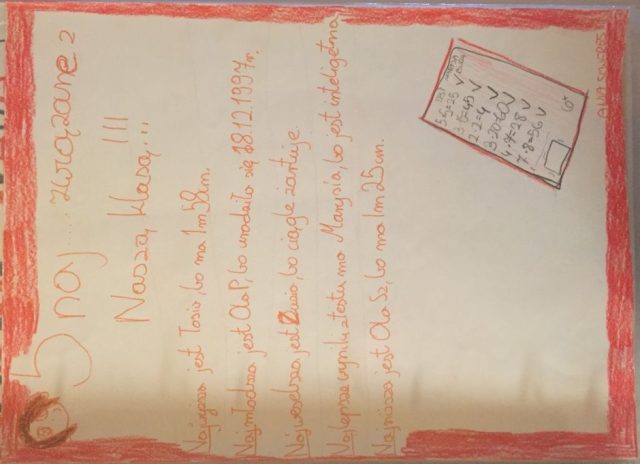 5 naj.... związane z
Naszą klasą...!!!
Najwyższa jest Tosia, bo ma 1m 58cm.
Najmłodsza jest Ola P, bo urodziła się 18.12.1997r.
Najweselsza jest Zuza, bo ciągle żartuje.
Najlepsze wyniki z testu ma Marysia, bo jest inteligetna.
Najniższa jest Ola Sz, bo ma 1m 25cm.
5·5=25 V
3·15=45 V
2·2=4 V
4·7=28 V
7·8=56 V
6+